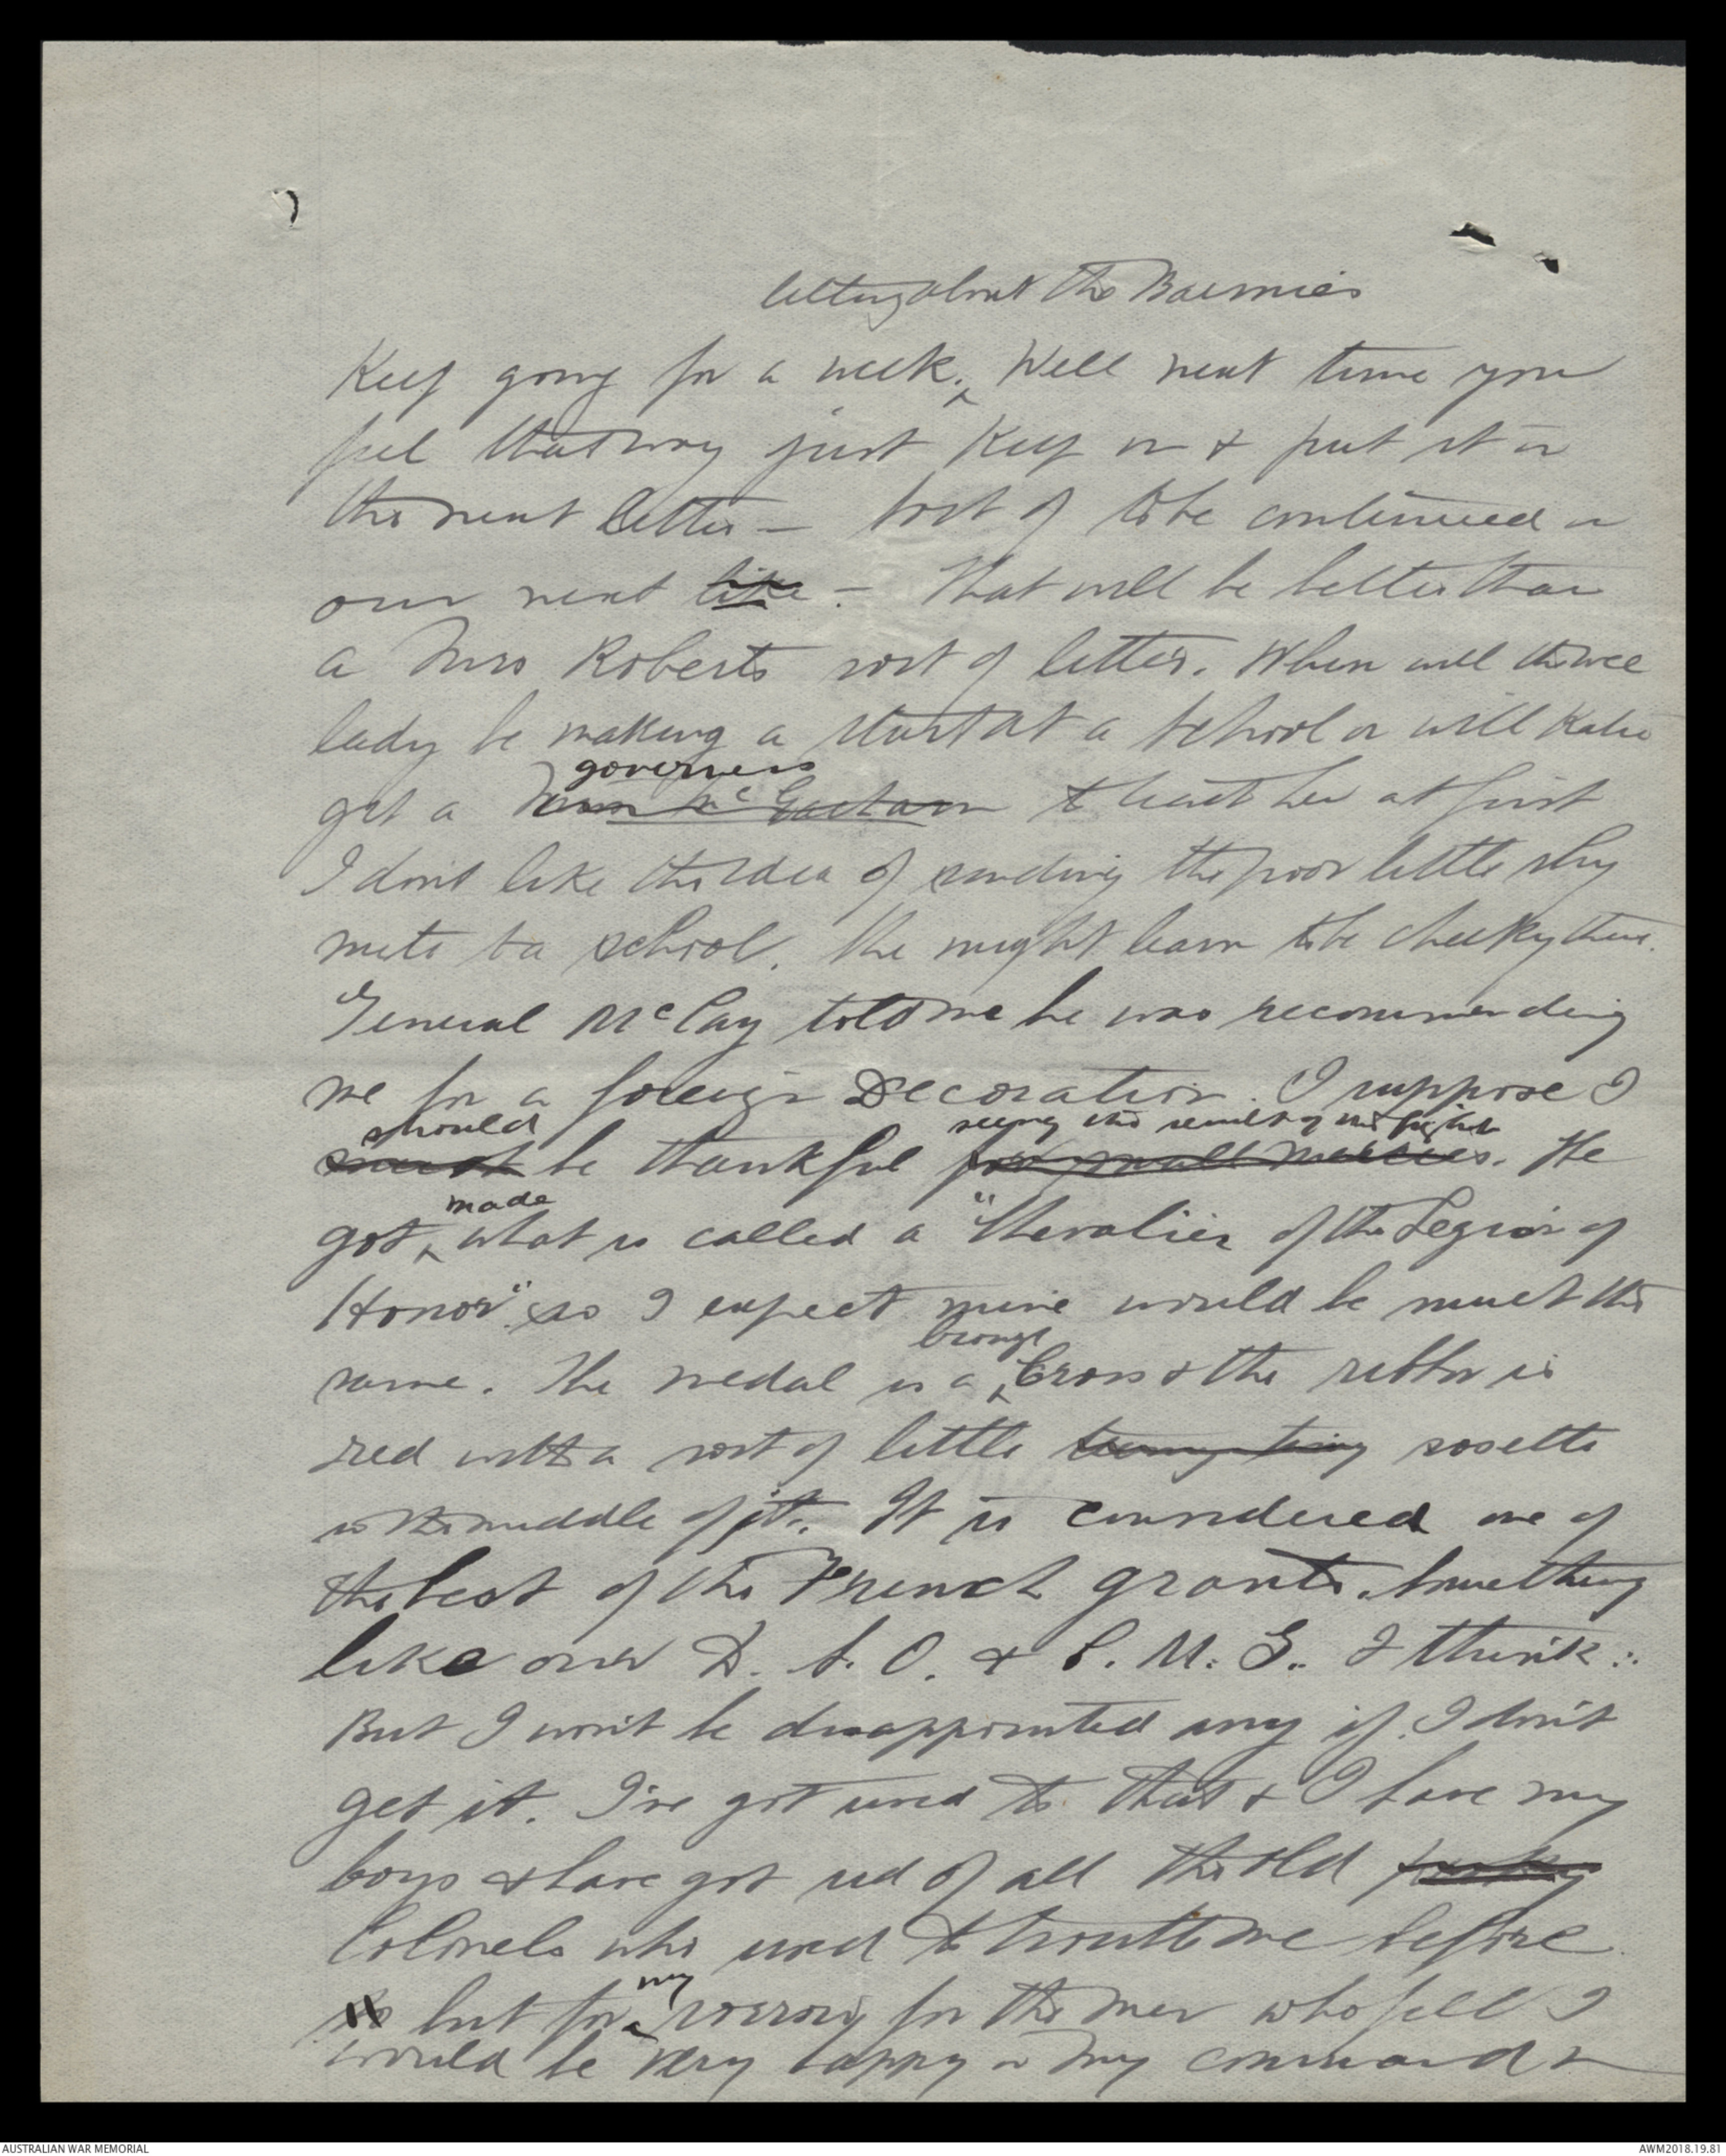 letting about the Bairnies
Keep going for a week. Well next time you
feel that way just keep on & put it in
the next letter - sort of to be continued in
our next like - That will be better than
a Mrs Roberts sort of letter. When will the wee
lady be making a start at a school or will Katie
governess
get a to teach her at first
I don't like the idea of sending the poor little shy
mite to a school. She might learn to be cheeky there.
General McCay told me he was recommending
me for a foreign Decoration. I suppose I
should seeing the result of the fight
must be thankful for small mercies. He
made
got what is called a "Chevalier of the Legion of
Honor" so I expect mine would be much the
bronze
same. The medal is a Cross & the ribbon is
red with a sort of little rosette
in the middle of it. It is considered one of
the best of the French grants. Something
like our D.S.O. & C.M.G. I think.
But I won't be disappointed any if I don't
get it. I've got used to that & I have my
boys & have got rid of all the old
Colonels who used to trouble me before
my
but for sorrow for the men who fell I
would be very happy in my command &
AUSTRALIAN WAR MEMORIAL
AWM2018.19.81